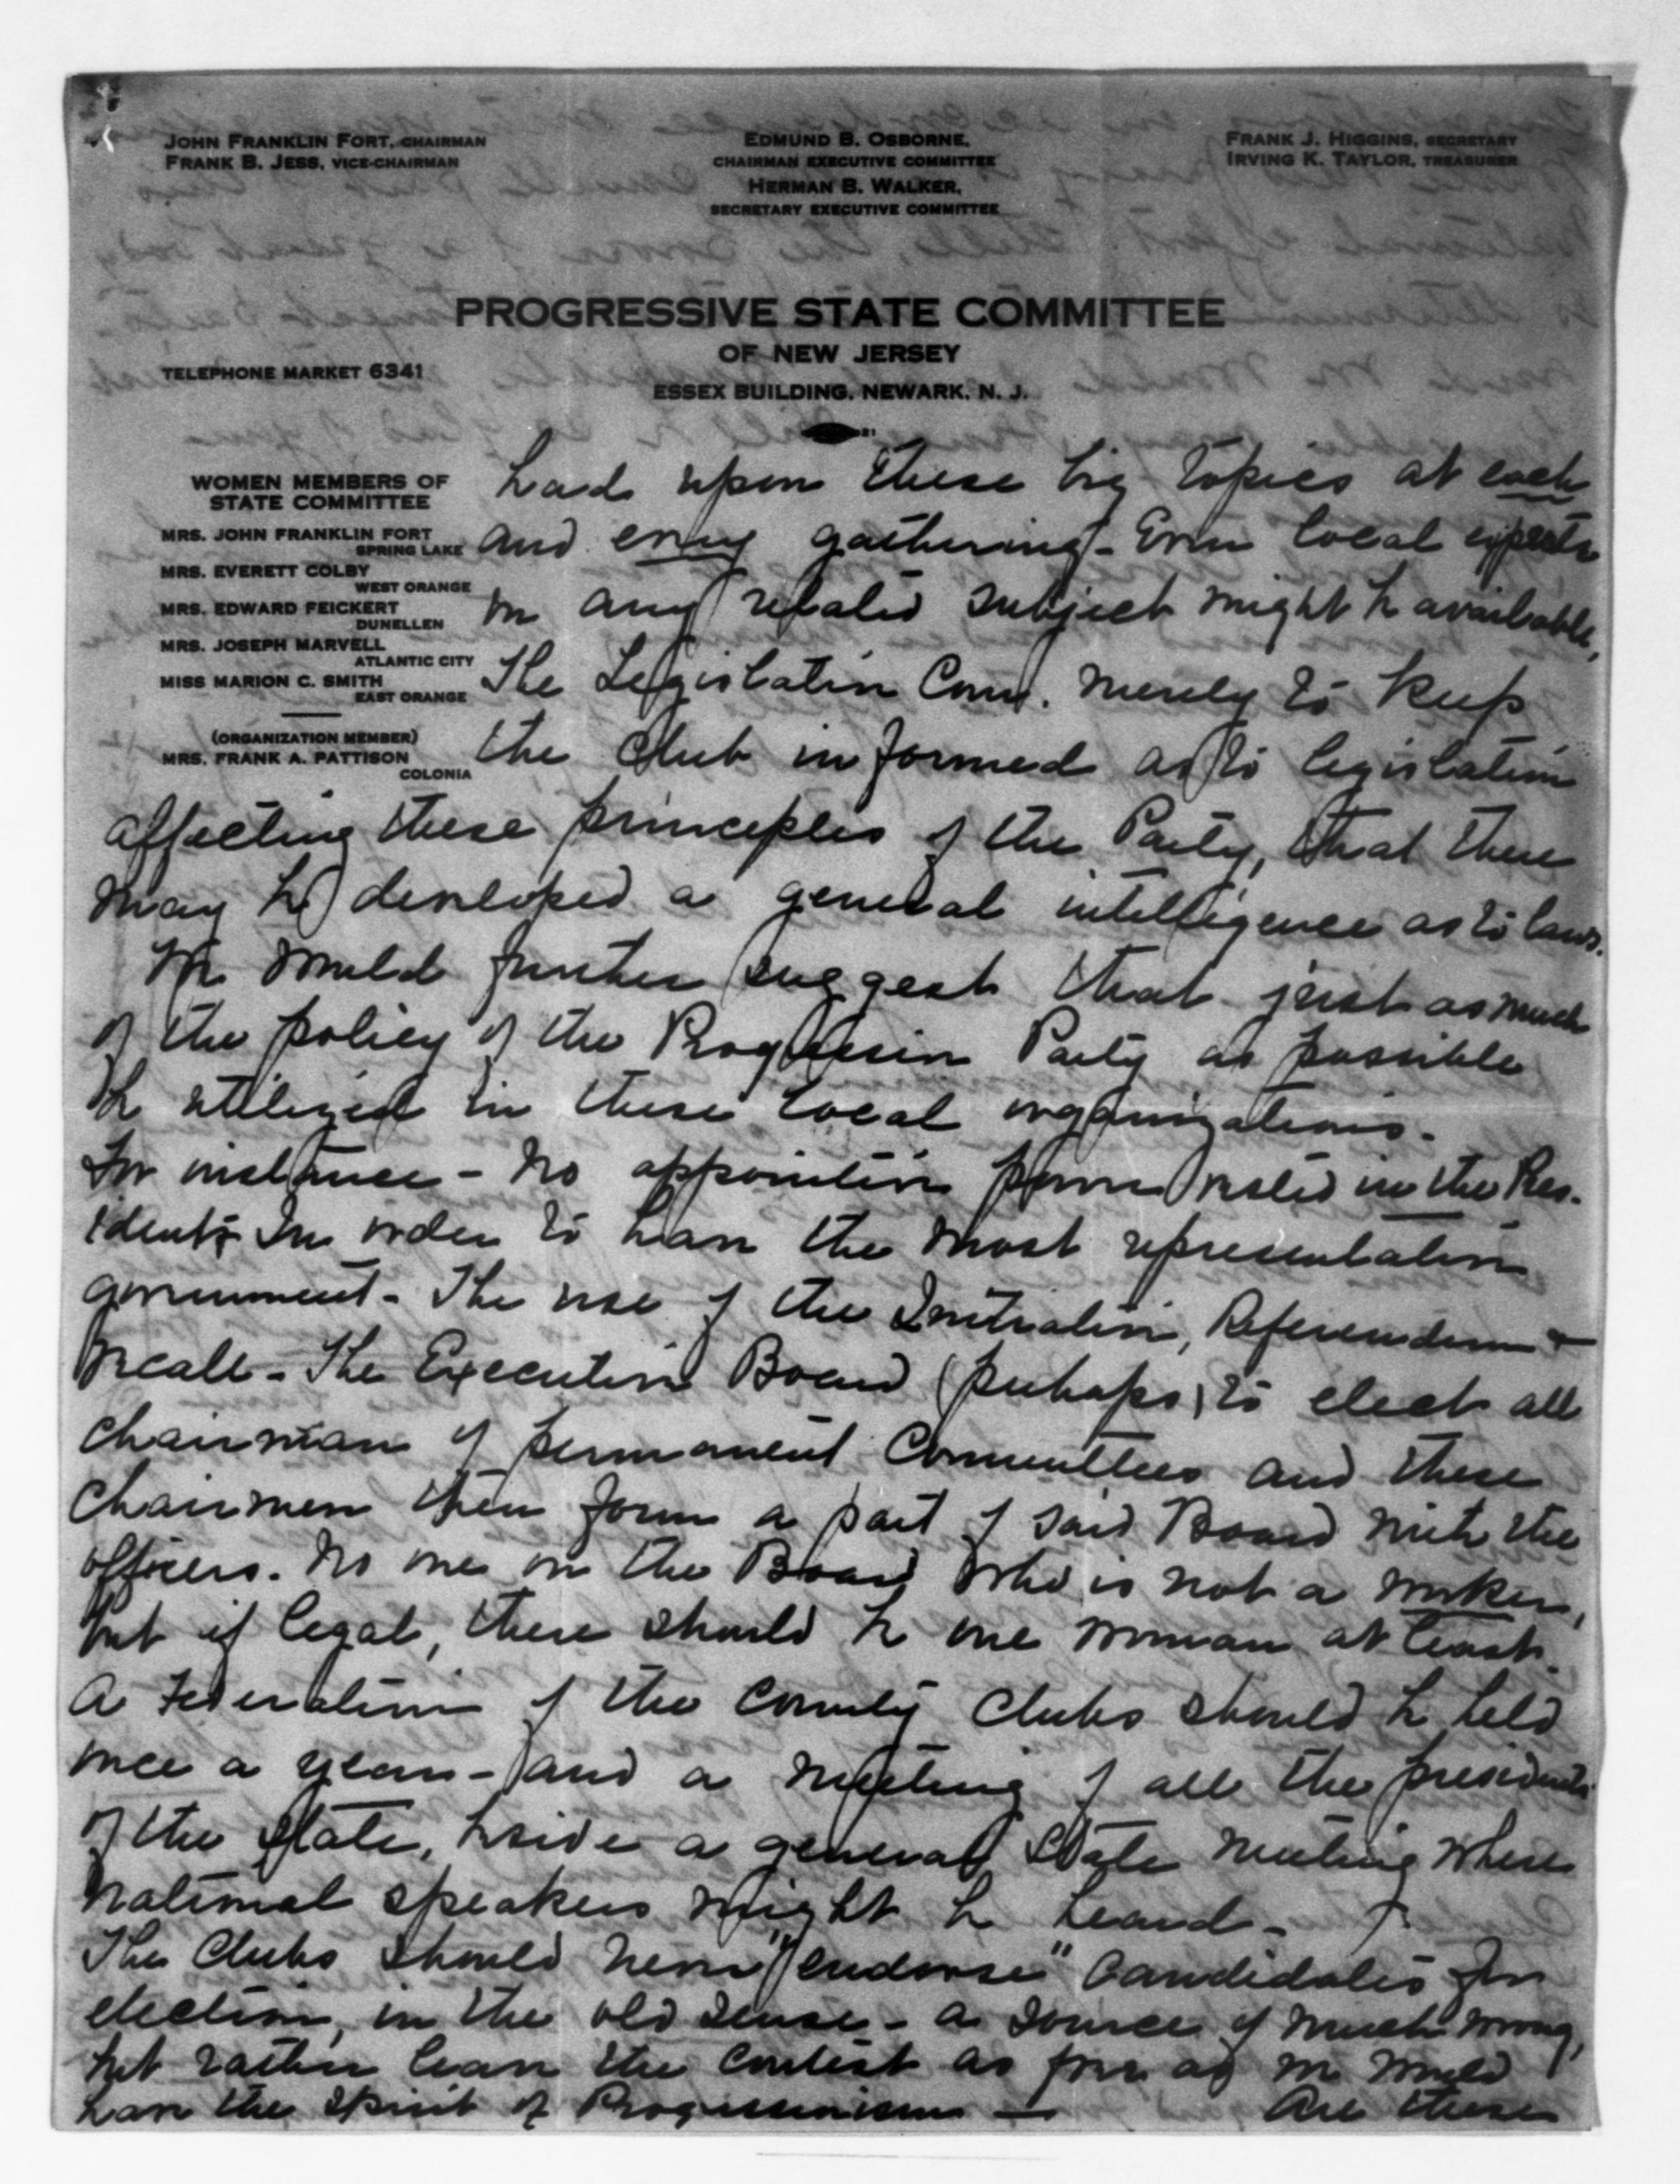 JOHN FRANKLIN FORT, CHAIRMAN
FRANK B. JESS, VICE-CHAIRMAN
EDMUND B. OSBORNE,
CHAIRMAN EXECUTIVE COMMITTEE
HERMAN B. WALKER,
SECRETARY EXECUTIVE COMMITTEE
FRANK J. HIGGINS, SECRETARY
IRVING K. TAYLOR, TREASURER
PROGRESSIVE STATE COMMITTEE
OF NEW JERSEY
ESSEX BUILDING, NEWARK, N. J.
TELEPHONE MARKET 6341
WOMEN MEMBERS OF
STATE COMMITTEE
MRS. JOHN FRANKLIN FORT
SPRING LAKE
MRS. EVERETT COLBY
WEST ORANGE
MRS. EDWARD FEICKERT
DUNELLEN
MRS. JOSEPH MARVELL
ATLANTIC CITY
MISS MARION C. SMITH
EAST ORANGE
(ORGANIZATION MEMBER)
MRS. FRANK A. PATTISON
COLONIA
had upon these big topics at each
and every gathering - Even local experts
on any related subject might be available,
The Legislative Com. merely to keep
the Club informed as to legislation
affecting these principles of the Party, that there
may be developed a general intelligence as to laws.
We would further suggest that just as much
of the policy of the Progressive Party as possible
be utilized in these local organizations.
For instance - No appointive power vested in the Pres-
idents In order to have the most representative
government - The use of the Initiative, Referendum &
recall - The Executive Board (perhaps) to elect all
chairman of permanent Committees and these
Chairmen then form a part of said Board with the
officers. No one on the Board who is not a worker,
but if legal, there should be one woman at least.
A Federation of the County Clubs should be held
once a year - and a meeting of all the presidents
of the State, beside a general State meeting where
National speakers might be heard -
The Clubs should never "endorse" Candidates for
election, in the old sense - a source of much wrong,
but rather leave the contest as free as we would
have the spirit of Progressivism — Are these